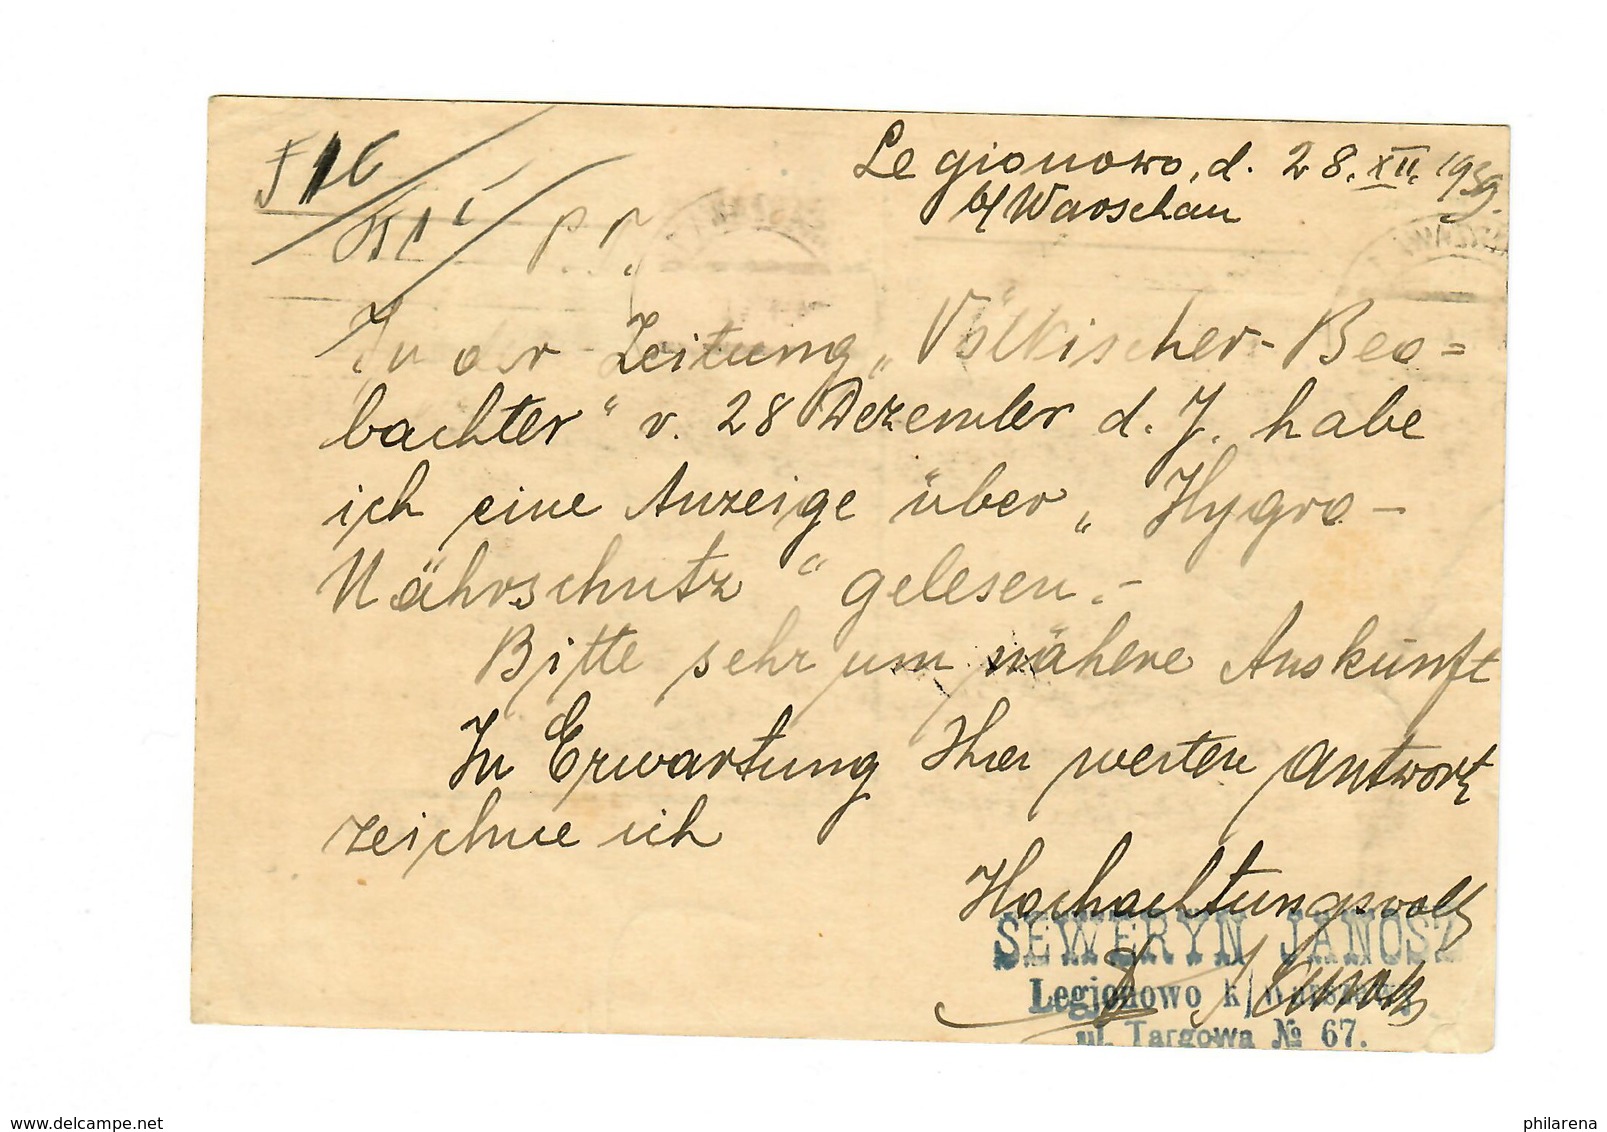 Legionowo, d. 28. XII. 1939.
b/Warschau
P. P.
In der Zeitung „Völkischer-Beo=
bachter“ v. 28 Dezember d. J. habe
ich eine Anzeige über „Hygro-
Nährschutz“ gelesen.-
Bitte sehr um nähere Auskunft
In Erwartung Ihrer werten Antwort
zeichne ich
Hochachtungsvoll
SEWERYN JANOSZ
Legjonowo k/Warszawy
ul. Targowa № 67.
www.delcampe.net
philarena